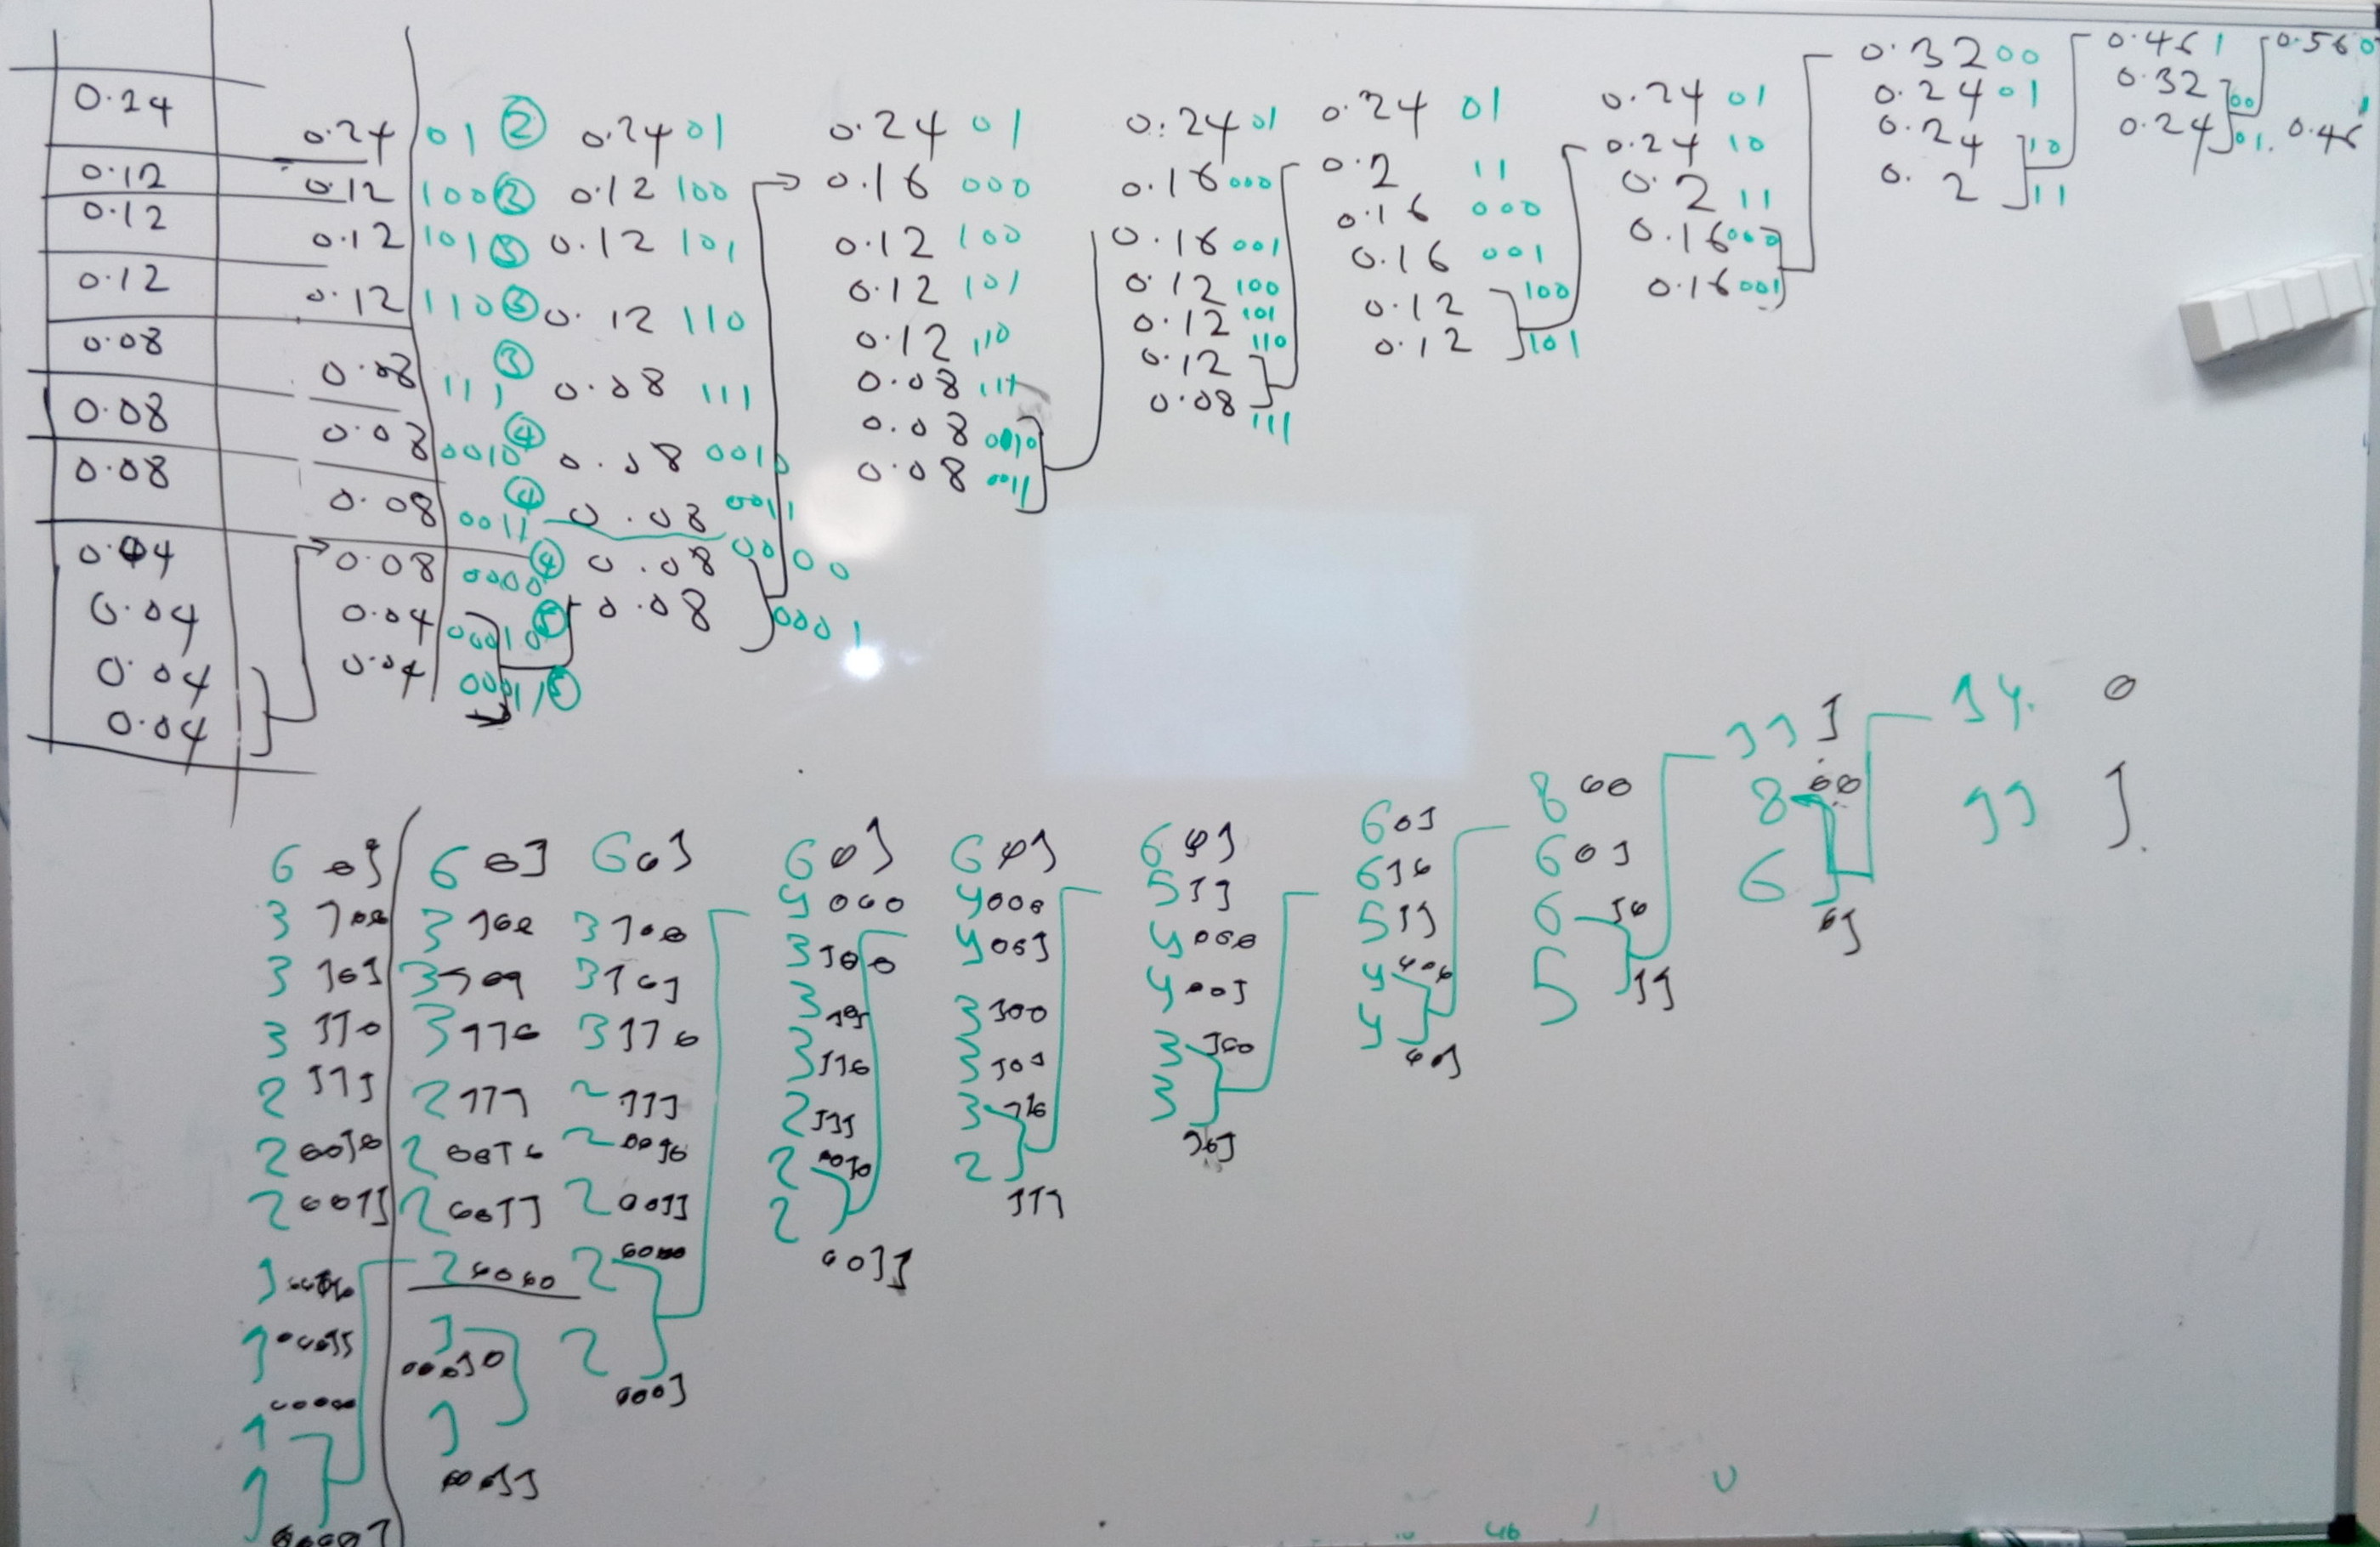 0.24
0.12
0.12
0.12
0.08
0.08
0.08
0.04
0.04
0.04
0.04
0.24 01 2
0.12 100 3
0.12 101 3
0.12 110 3
0.08 111 3
0.08 0010 4
0.08 0011 4
0.08 0000 4
0.04 00010 5
0.04 00011 5
0.24 01
0.12 100
0.12 101
0.12 110
0.08 111
0.08 0010
0.08 0011
0.08 0000
0.08 0001
0.24 01
0.16 000
0.12 100
0.12 101
0.12 110
0.08 111
0.08 0010
0.08 0011
0.24 01
0.16 000
0.16 001
0.12 100
0.12 101
0.12 110
0.08 111
0.24 01
0.2 11
0.16 000
0.16 001
0.12 100
0.12 101
0.24 01
0.24 10
0.2 11
0.16 000
0.16 001
0.32 00
0.24 01
0.24 10
0.2 11
0.46 1
0.32 00
0.24 01
0.56 0
0.46 1
6 01
3 100
3 101
3 110
2 111
2 0010
2 0011
1
1 00011
1 00000
1 00001
6 01
3 100
3 101
3 110
2 111
2 0010
2 0011
2 0000
1 00010
1 00011
6 01
3 100
3 101
3 110
2 111
2 0010
2 0011
2 0000
2 0001
6 01
4 000
3 100
3 101
3 110
2 111
2 0010
2 0011
6 01
4 000
4 001
3 100
3 101
3 110
2 111
6 01
5 11
4 000
4 001
3 100
3 101
6 01
6 10
5 11
4 000
4 001
8 00
6 01
6 10
5 11
11 1
8 00
6 01
14 0
11 1